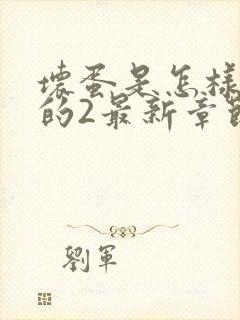 壞蛋是怎樣
的2最新章節
劉軍